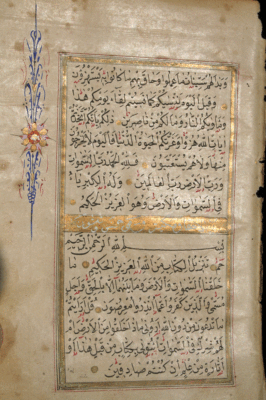 وبدا لهم سيئات ما عملوا وحاق بهم ما كانوا به يستهزؤن
وقيل اليوم ننسيكم كما نسيتم لقاء يومكم هذا
ومأويكم النار وما لكم من ناصرين ذلكم بانكم اتخذتم
ايات الله هزوا وغرتكم الحيوة الدنيا فاليوم لا يخرجون
منها ولا هم يستعتبون فلله الحمد رب السموات
ورب الارض رب العالمين وله الكبرياء
في السموات والارض وهو العزيز الحكيم
بسم الله الرحمن الرحيم
حم تنزيل الكتاب من الله العزيز الحكيم ما
خلقنا السموات والارض وما بينهما الا بالحق واجل
مسمى والذين كفروا عما انذروا معرضون قل ارايتم
ما تدعون من دون الله اروني ماذا خلقوا من الارض ام
لهم شرك في السموات ايتوني بكتاب من قبل هذا او
اثارة من علم ان كنتم صادقين